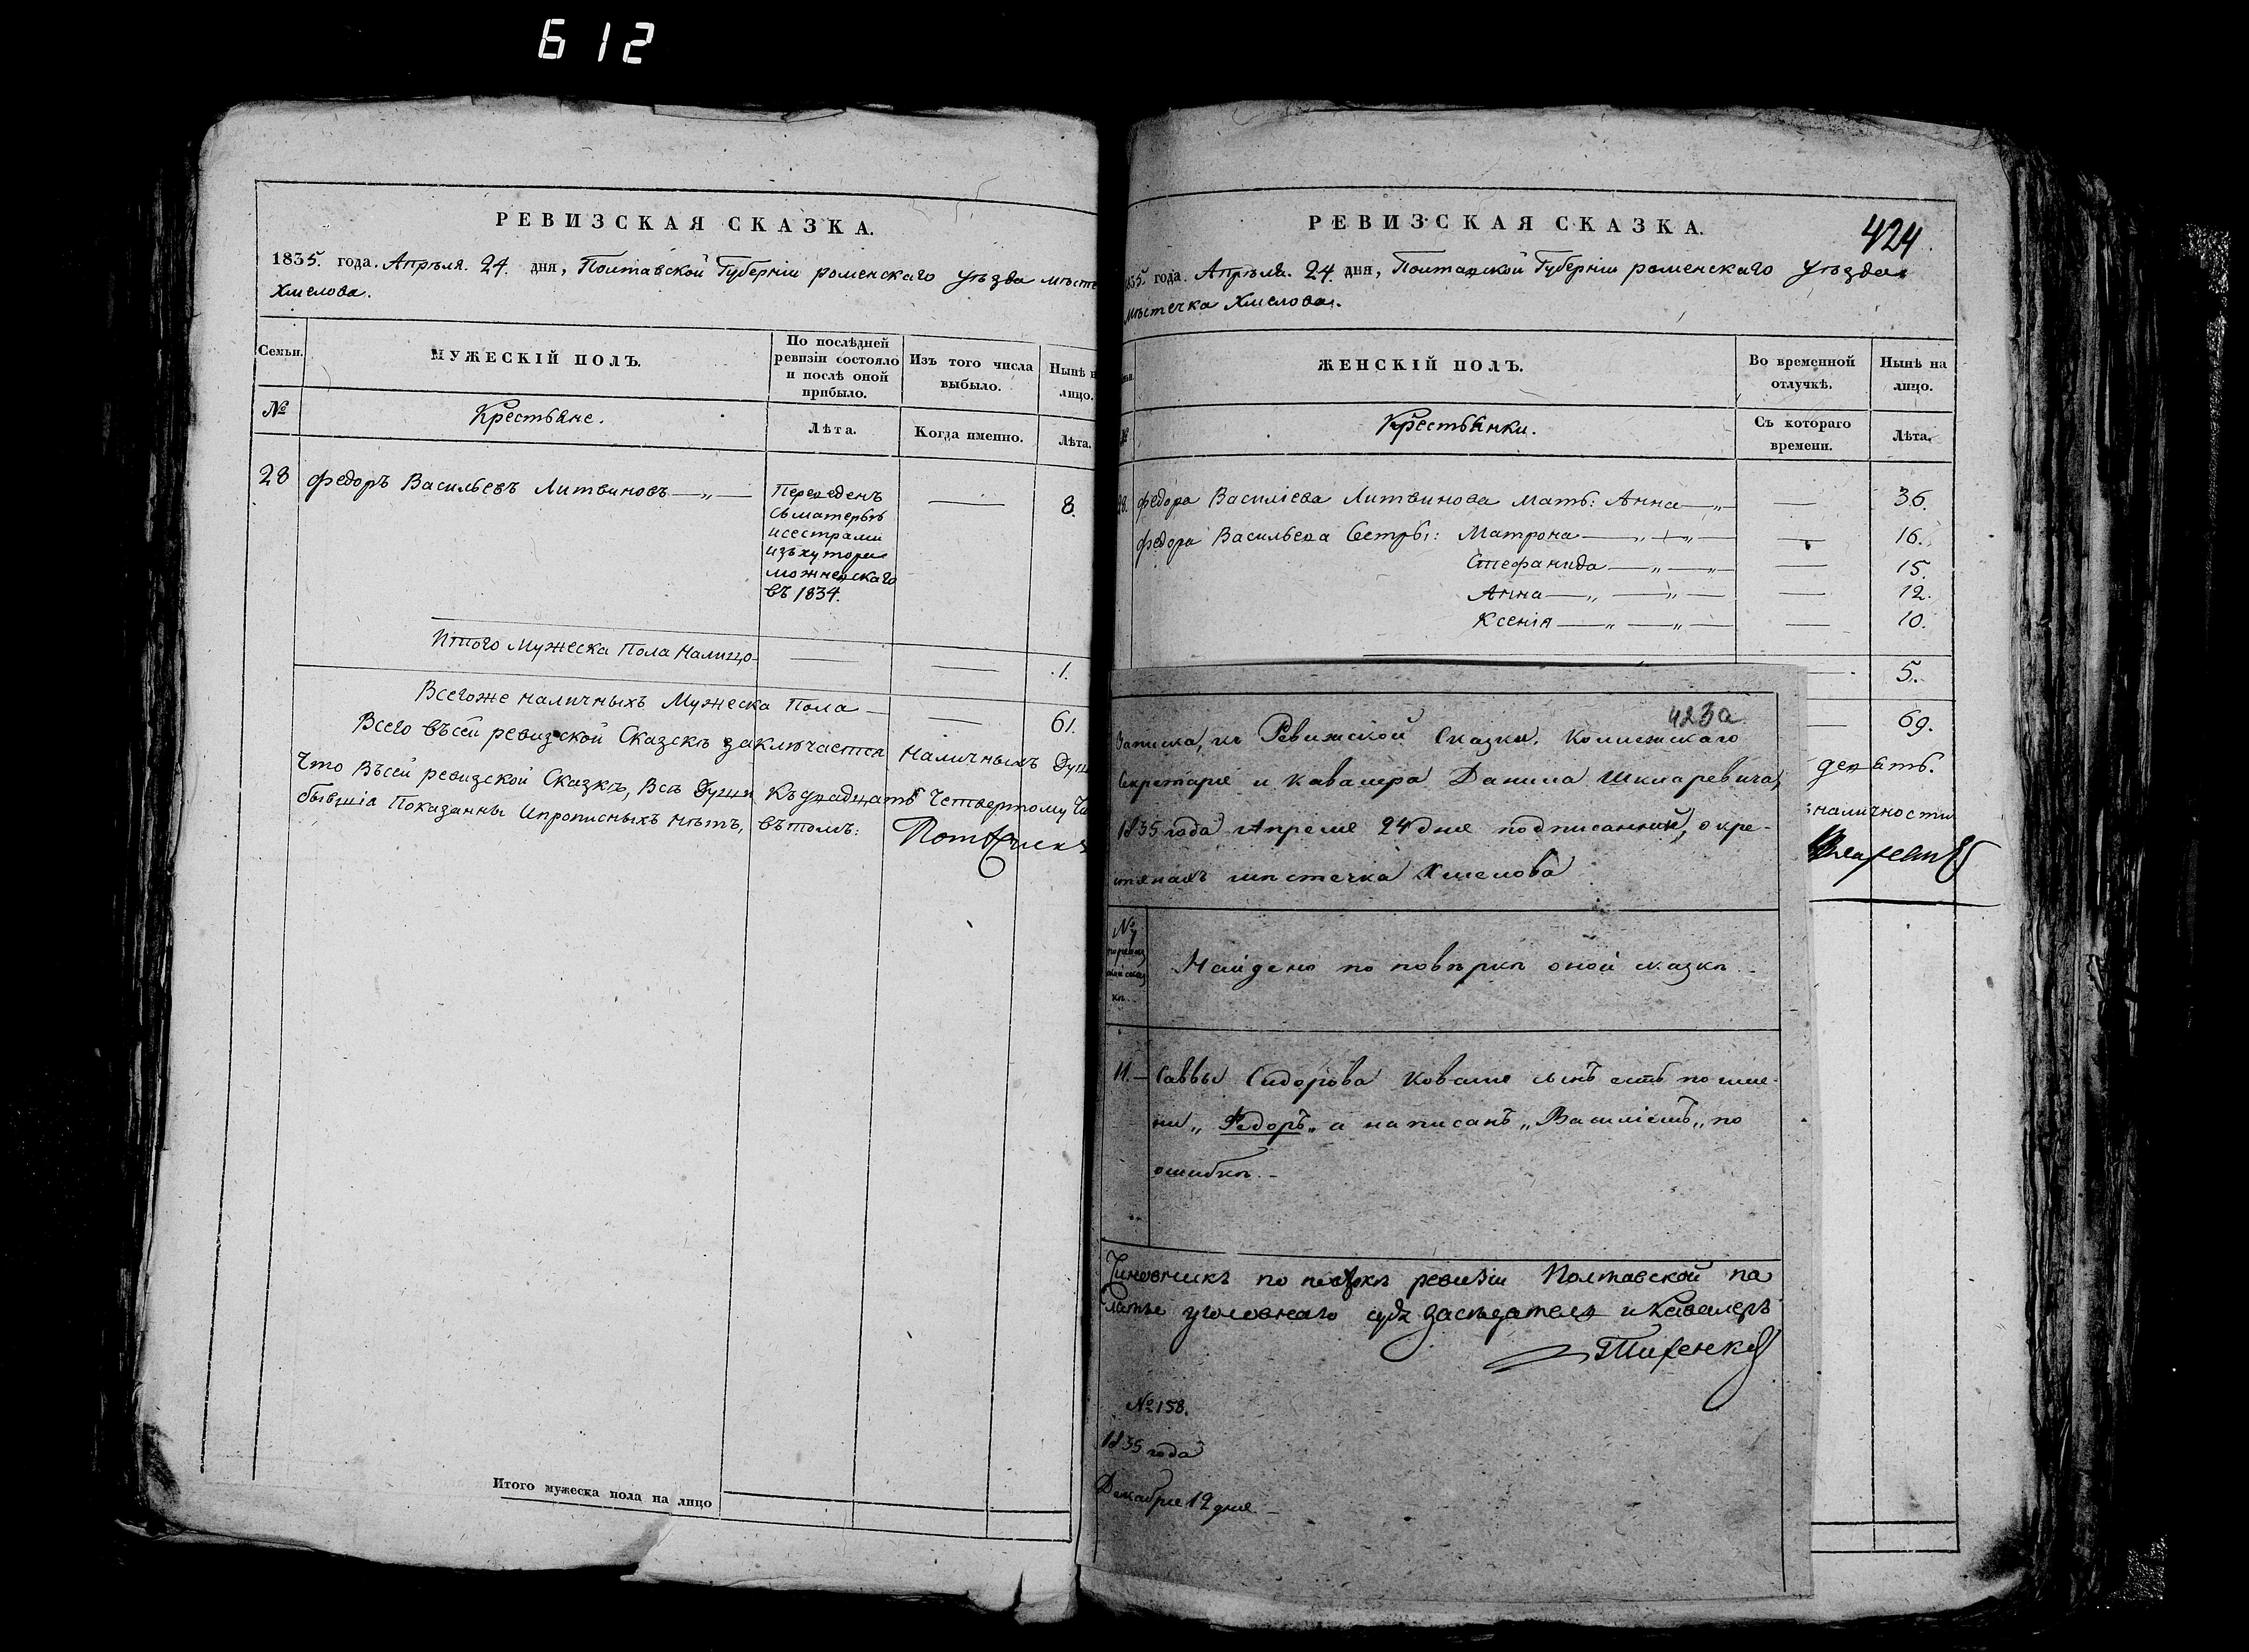 612
РЕВИЗСКАЯ СКАЗКА.
1835. года. Апрѣля. 24. дня, Полтавской Губерніи роменскаго уѣзда мѣсте
Хмелова.
Семьи.
МУЖЕСКІЙ ПОЛЪ.
По послѣдней
ревизіи состояло
и послѣ оной
прибыло.
Изъ того числа
выбыло.
Нынѣ н
лицо.
№
Крестьяне.
Лѣта.
Когда именно.
Лѣта.
28
Федоръ Васильевъ Литвиновъ
Переведенъ
съ матерью
и сестрами
изъ хутора
в 1834.
8.
Итого Мужеска Пола Налицо
1.
Всегоже наличныхъ Мужеска Пола
61.
Всего въсей ревизской Сказкѣ заключается наличныхъ Душ
Что Въсей ревизской Сказкѣ, Всѣ Души Къдвадцать Четвертому Чи
бывшіа Показанны Ипрописныхъ нѣтъ, вътомъ:
Итого мужеска пола на лицо
РЕВИЗСКАЯ СКАЗКА.
424
835. года. Апрѣля. 24. дня, Полтавской Губерніи роменскаго уѣзда
мѣстечка Хмелова.
ЖЕНСКІЙ ПОЛЪ.
Во временной
отлучкѣ.
Нынѣ на
лицо.
№
Крестьянки.
Съ котораго
времени.
Лѣта.
28.
Федора Василіева Литвинова Мать: Анна
36.
Федора Васильева Сестры: Матрона
16.
Стефанида
15.
Анна
12.
Ксенія
10.
5.
69.
девять.
наличности
423а
Записка, къ Ревижской Сказки, Колежскаго
Секретаря и Кавалера Данила Шкларевича,
1835 года Апреля 24 дня подписанной, о кре-
стянахъ мѣстечка Хмелова
№
поревиз
ской сказ
кѣ.
Найдено по повѣркѣ оной сказкѣ
11.
Саввы Сидорова Коваля сынъ есть по име-
ни „Федоръ„ а написанъ „Василіемъ„ по
ошибкѣ.
Чиновникъ по повѣркѣ ревизіи Полтавской па
латы уголовнаго суда засѣдатель и Кавалеръ
№ 158.
1835 года
Декабря 12 дня